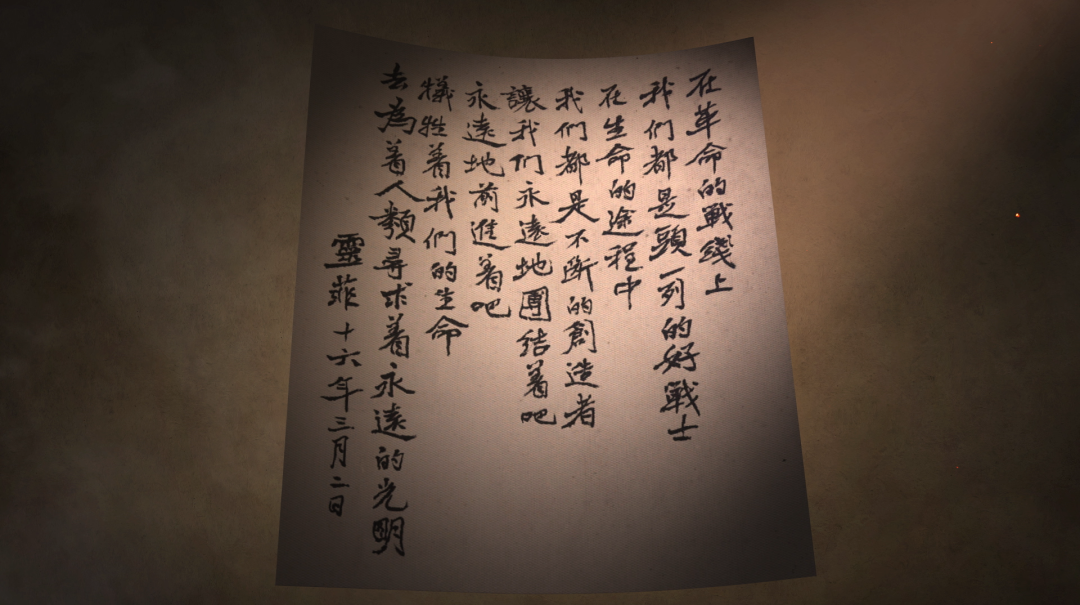 在革命的戰綫上
我们都是頭一列的好戰士
在生命的途程中
我们都是不断的創造者
讓我们永遠地團结着吧
永遠地前進着吧
犠牲着我們的生命
去為着人類尋求着永遠的光明
靈菲十六年三月二日